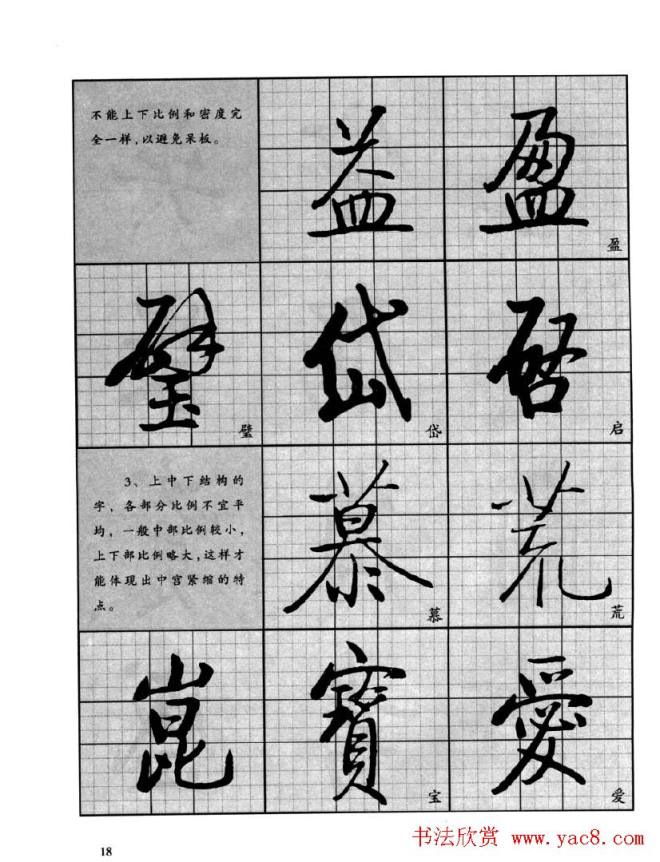 不能上下比例和密度完
全一样，以避免呆板。
益
盈
盈
璧
璧
岱
岱
啓
启
3、上中下结构的
字，各部分比例不宜平
均，一般中部比例较小，
上下部比例略大，这样才
能体现出中宫紧缩的特
点。
慕
慕
荒
荒
崑
寶
宝
愛
爱
18
书法欣赏 www.yac8.com